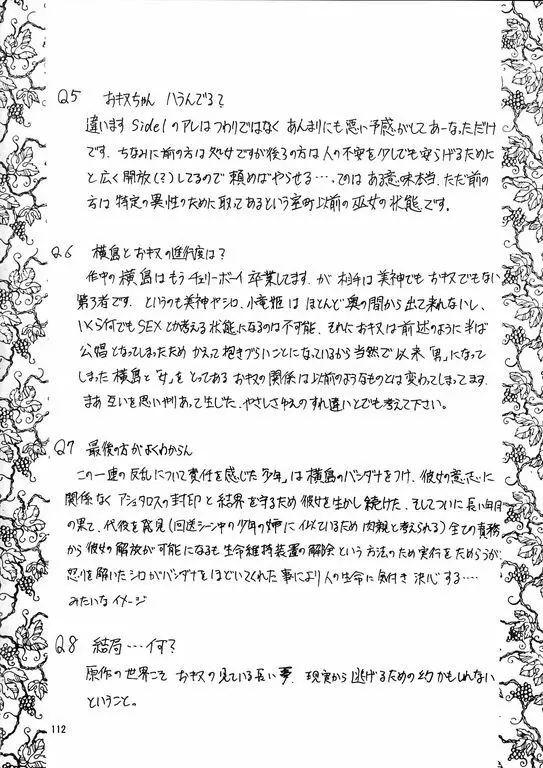 Q5 おキヌちゃん ハラんでる?
違います Side1のアレはつわりではなく あんまりにも悪い予感がしてあーなっただけ
です. ちなみに前の方は処女ですが後ろの方は人の不安を少しでも安らげるために
と広く開放(?)してるので 頼めばやらせる…,てのは ある意味本当. ただ前の
方は特定の異性のために取ってあるという室町以前の巫女の状態です。
Q6 横島とおキヌの進行度は?
作中の横島はもうチェリーボーイ卒業してます. が 相手は美神でも おキヌでもない
第3者です. というのも美神やシロ、小竜姫は ほとんど奥の間から出て来れないし、
いくら何でもSEXとか考える状態になるのは不可能. それにおキヌは前述のように半ば
公娼となってしまったため かえって抱きづらいことになっているから 当然で 以来「男」になって
しまった横島と「女」をとってある おキヌの関係は以前のようなものとは変わってしまってます.
まあ互いを思いやりあって生じた、やさしさゆえのすれ違いとでも考えて下さい。
Q7 最後の方がよくわからん
この一連の反乱について責任を感じた「少年」は 横島のバンダナをつけ、彼女の意志に
関係なく アシュタロスの封印と結界を守るため彼女を生かし続けた、そしてついに長い年月
の果て、代役を発見(回送シーン中の少年の姉に似ているため肉親と考えられる)全ての責務
から彼女の解放が可能になるも 生命維持装置の解除という方法のため実行をためらうが、
怒りを解いたシロがバンダナをほどいてくれた事により人の生命に気付き 決心する….
みたいなイメージ
Q8 結局…何?
原作の世界こそ おキヌの見ている長い夢. 現実から逃げるための幻かもしれない
ということ。
112